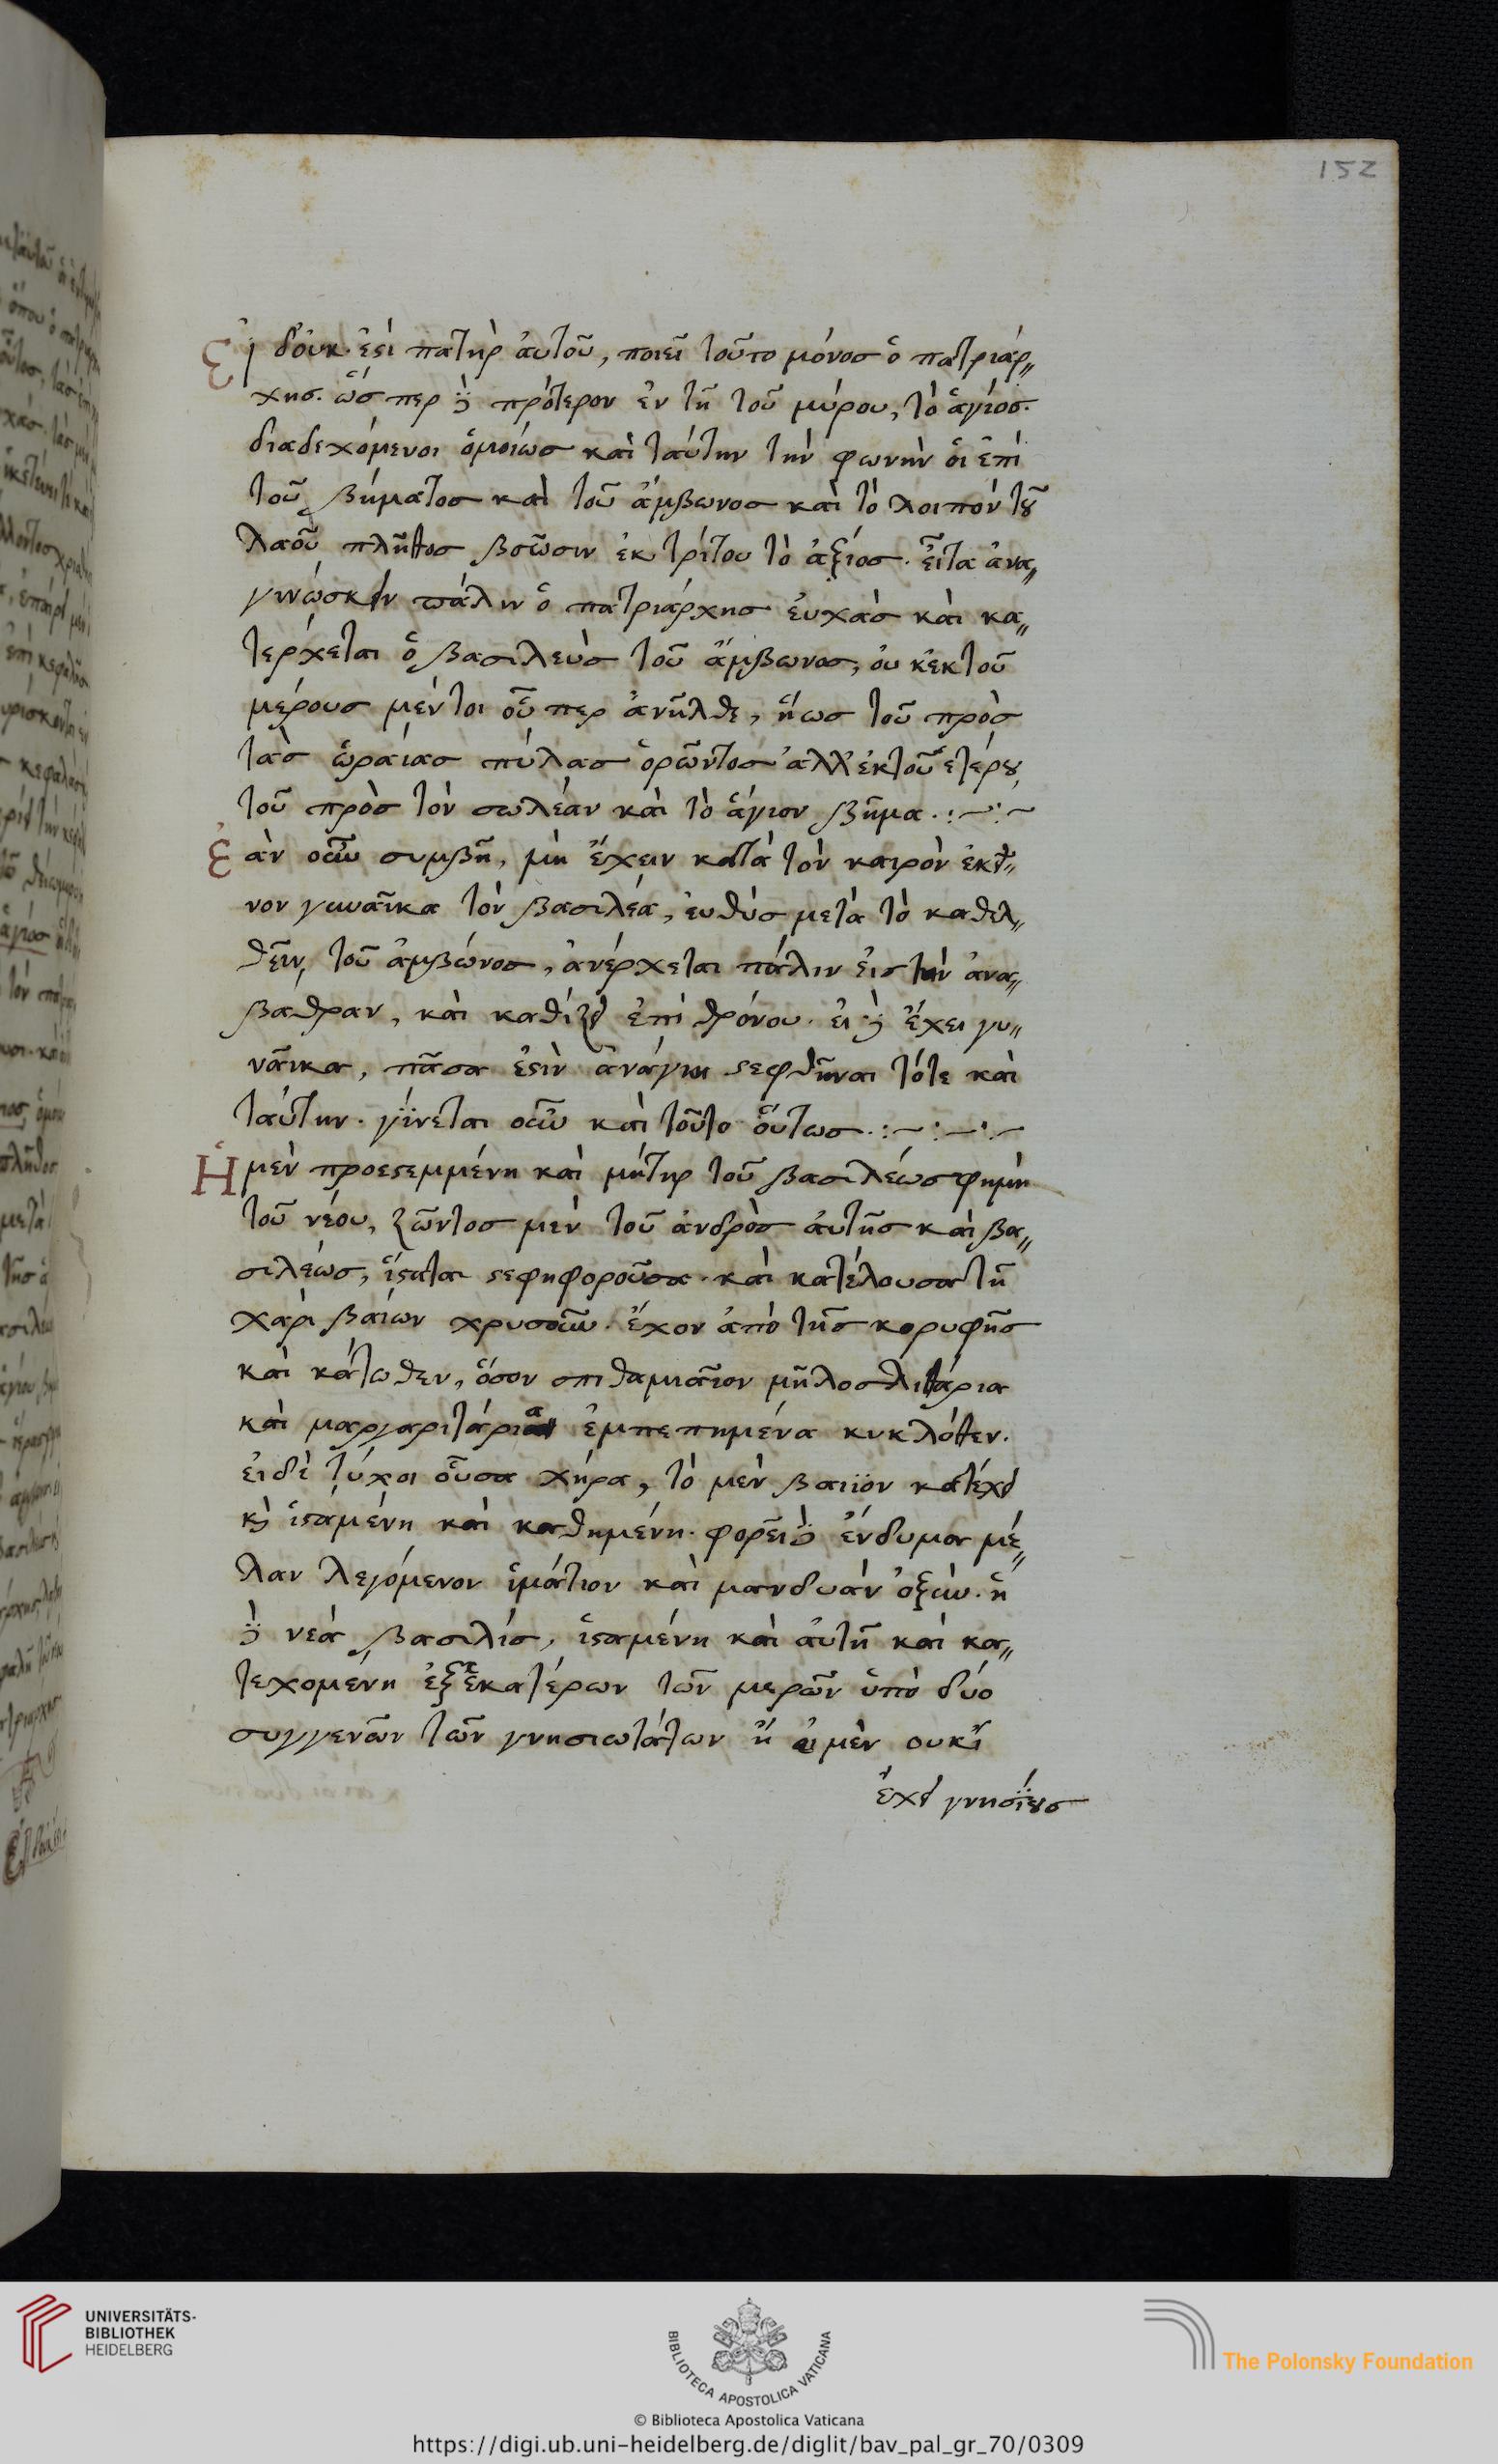 152
Εἰ δ' οὐκ ἔστι πατὴρ αὐτοῦ, ποιεῖ τοῦτο μόνος ὁ πατριάρ„
χης. ὥσπερ δὲ πρότερον ἐν τῇ τοῦ μύρου, τὸ ἅγιος.
διαδεχόμενοι ὁμοίως καὶ ταύτην τὴν φωνὴν οἱ ἐπὶ
τοῦ βήματος καὶ τοῦ ἄμβωνος καὶ τὸ λοιπὸν τοῦ
λαοῦ πλῆθος βοῶσιν ἐκ τρίτου τὸ ἄξιος. εἶτα ἀνα„
γινώσκειν πάλιν ὁ πατριάρχης εὐχὰς καὶ κα„
τέρχεται ὁ βασιλεὺς τοῦ ἄμβωνος, οὐκ ἐκ τοῦ
μέρους μέντοι οὗπερ ἀνῆλθε, ἤως τοῦ πρὸς
τὰς ὡραίας πύλας ὁρῶντος ἀλλ' ἐκ τοῦ ἑτέρου,
τοῦ πρὸς τὸν σωλέαν καὶ τὸ ἅγιον βῆμα.
Ἐὰν οὖν συμβῇ, μὴ ἔχειν κατὰ τὸν καιρὸν ἐκεῖ„
νον γυναῖκα τὸν βασιλέα, εὐθὺς μετὰ τὸ κατελ„
θεῖν τοῦ ἀμβώνος, ἀνέρχεται πάλιν εἰς τὴν ἀνα„
βάθραν, καὶ καθίζει ἐπὶ θρόνου. εἰ δὲ ἔχει γυ„
ναῖκα, πᾶσα ἐστὶν ἀνάγκη στεφθῆναι τότε καὶ
ταύτην. γίνεται οὖν καὶ τοῦτο οὕτως.
Ἡ μὲν προεστεμμένη καὶ μήτηρ τοῦ βασιλέως φημὴ
τοῦ νέου, ζῶντος μὲν τοῦ ἀνδρὸς αὐτῆς καὶ βα„
σιλέως, ἵσταται στεφηφοροῦσα. καὶ κατέχουσα τῇ
χειρὶ βαίων χρυσοῦν. ἔχον ἀπὸ τῆς κορυφῆς
καὶ κάτωθεν, ὅσον σπιθαμιαῖον μῆλος λιθάρια
καὶ μαργαριτάρια ἐμπεπημένα κυκλόθεν.
εἰ δὲ τύχοι οὖσα χήρα, τὸ μὲν βαιϊὸν κατέχει
καὶ ἱσταμένη καὶ καθημένη. φορεῖ δὲ ἔνδυμα μέ„
λαν λεγόμενον ἱμάτιον καὶ μανδυὰν ὀξύν. ἡ
δὲ νεὰ βασιλὶς, ἱσταμένη καὶ αὐτὴ καὶ κα„
τεχομένη ἐξ ἑκατέρων τῶν μερῶν ὑπὸ δύο
συγγενῶν τῶν γνησιωτάτων ἢ εἰ μὲν οὐκ
ἔχει γνησίους
UNIVERSITÄTS-
BIBLIOTHEK
HEIDELBERG
BIBLIOTECA APOSTOLICA VATICANA
The Polonsky Foundation
© Biblioteca Apostolica Vaticana
https://digi.ub.uni-heidelberg.de/diglit/bav_pal_gr_70/0309